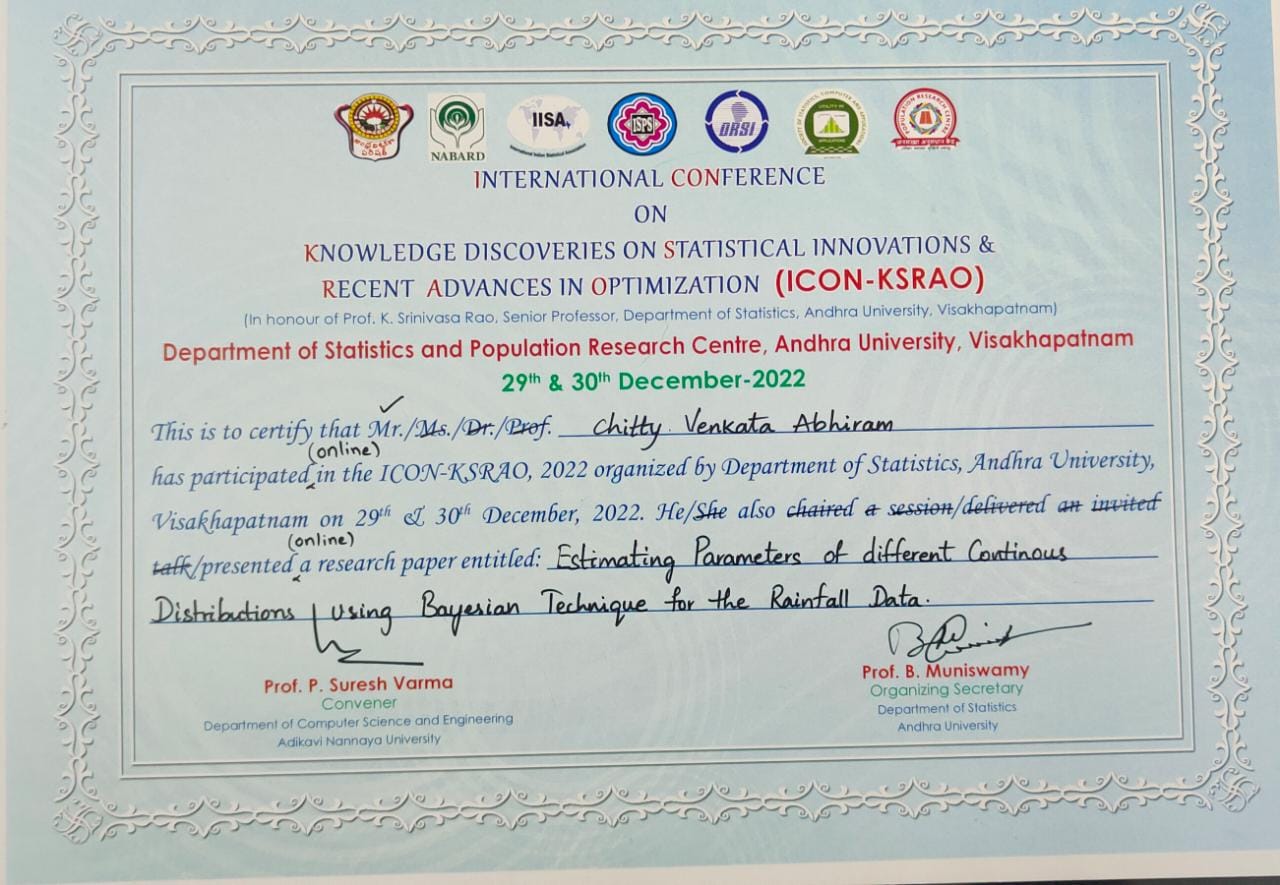 ఆంధ్ర విశ్వకళా పరిషత్
NABARD
IISA
International Indian Statistical Association
ISPS
ORSI
SOCIETY OF STATISTICS, COMPUTER AND APPLICATIONS
POPULATION RESEARCH CENTRE
जनसंख्या अनुसंधान केंद्र
INTERNATIONAL CONFERENCE
ON
KNOWLEDGE DISCOVERIES ON STATISTICAL INNOVATIONS &
RECENT ADVANCES IN OPTIMIZATION (ICON-KSRAO)
(In honour of Prof. K. Srinivasa Rao, Senior Professor, Department of Statistics, Andhra University, Visakhapatnam)
Department of Statistics and Population Research Centre, Andhra University, Visakhapatnam
29th & 30th December-2022
This is to certify that Mr./Ms./Dr./Prof. Chitty. Venkata Abhiram
(online)
has participated in the ICON-KSRAO, 2022 organized by Department of Statistics, Andhra University,
Visakhapatnam on 29th & 30th December, 2022. He/She also chaired a session/delivered an invited
(online)
talk/presented a research paper entitled: Estimating Parameters of different Continous
Distributions using Bayesian Technique for the Rainfall Data.
Prof. P. Suresh Varma
Convener
Department of Computer Science and Engineering
Adikavi Nannaya University
Prof. B. Muniswamy
Organizing Secretary
Department of Statistics
Andhra University